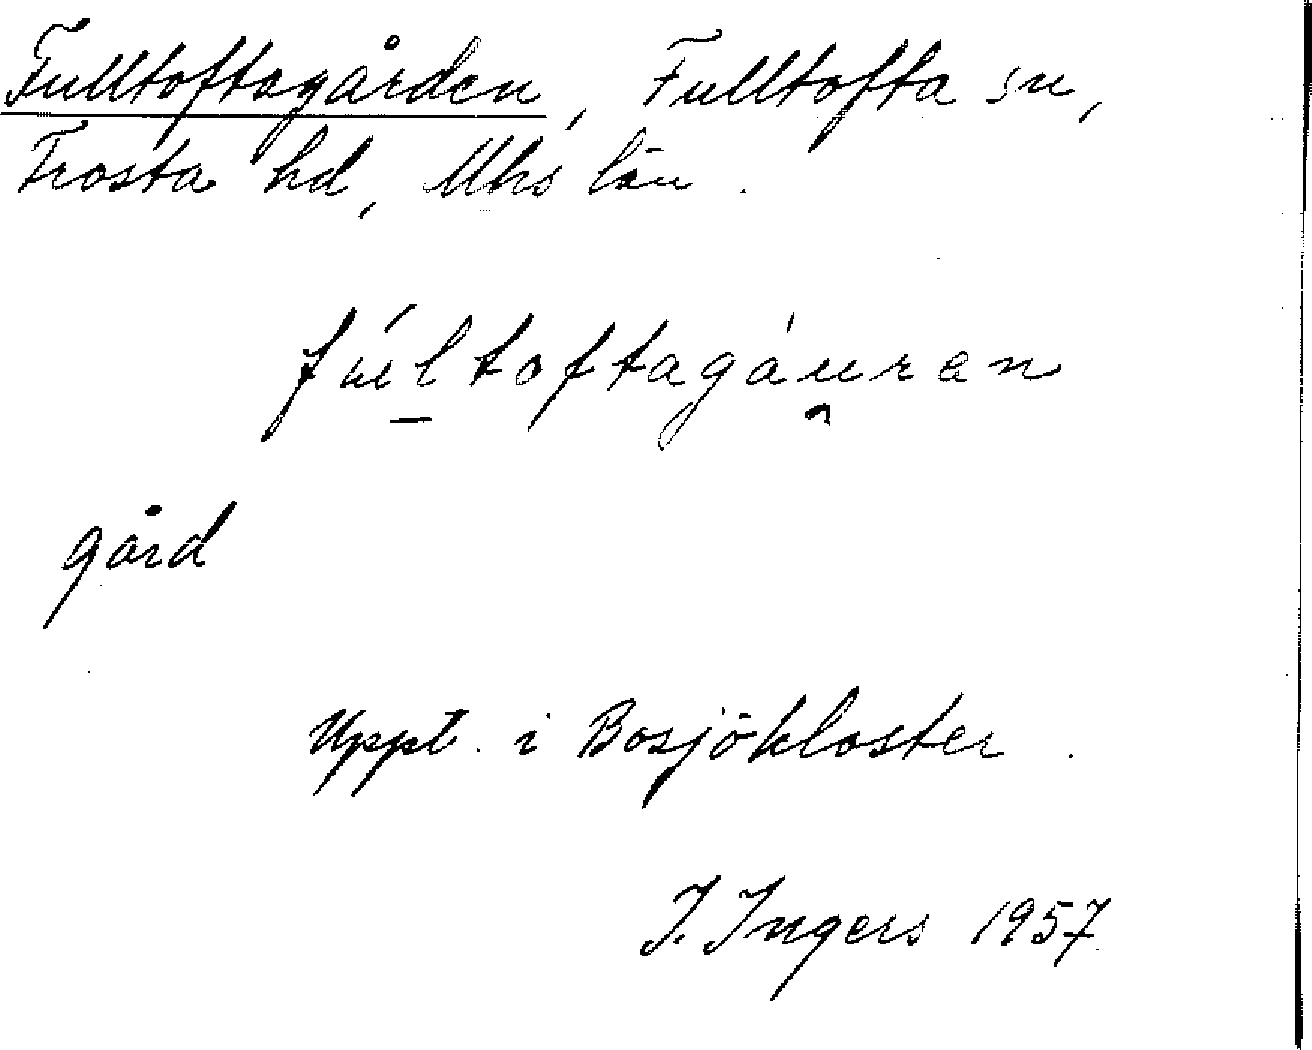 Fulltoftagården, Fulltofta sn,
Frosta hd, Mhs län.
fúltoftagáuran
gård
Uppt. i Bosjökloster.
I. Ingers 1957